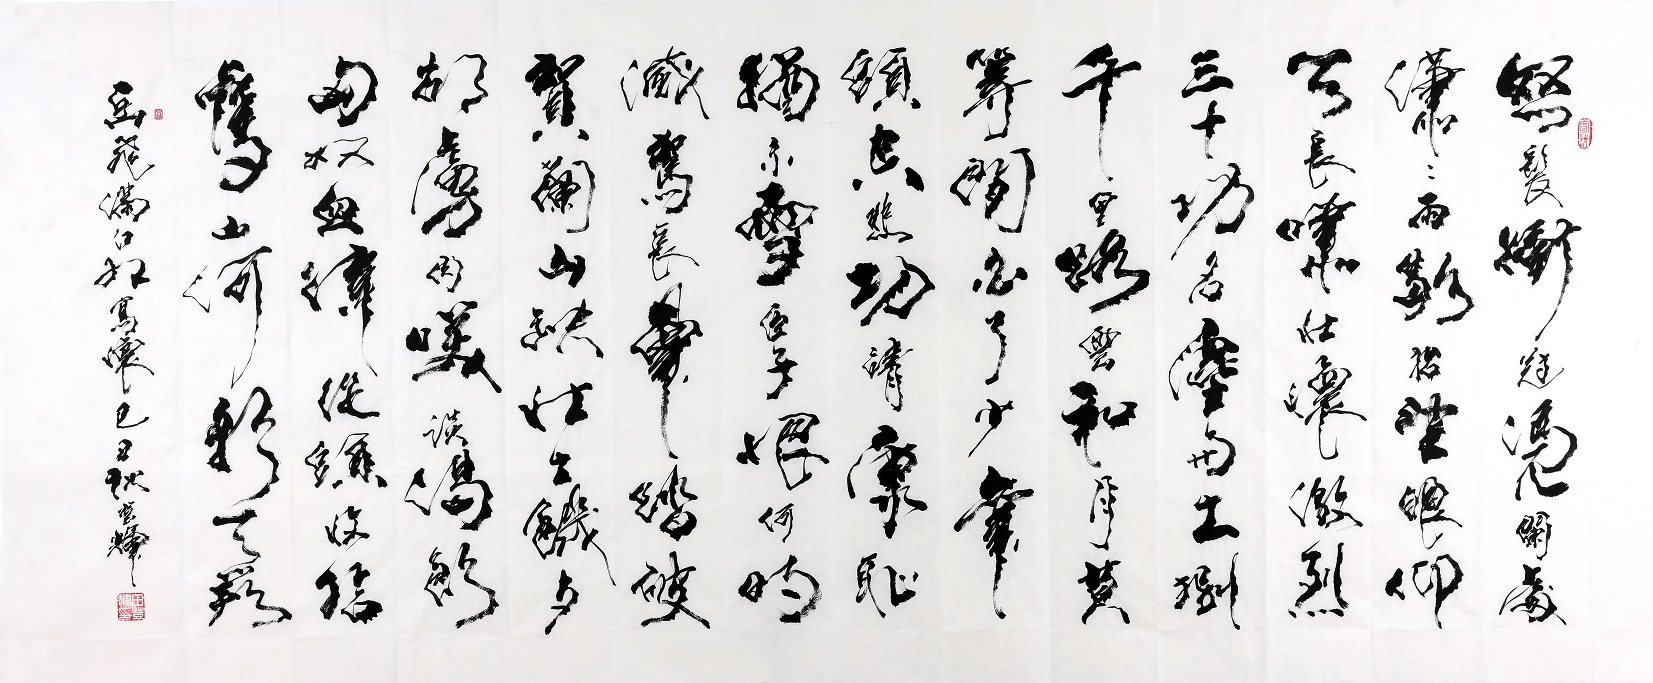 怒髮衝冠凴闌處
瀟々雨歇抬望眼仰
天長嘯壯懷激烈
三十功名塵與土捌
千里路雲和月莫
等閑白了少年
頭空悲切靖康恥
猶未雪臣子恨何時
滅駕長車踏破
賀蘭山缺壯志饑餐
胡虜肉笑談渴飲
匈奴血待從頭收拾
舊山河朝天闕
岳飛滿江紅寫懷己丑秋